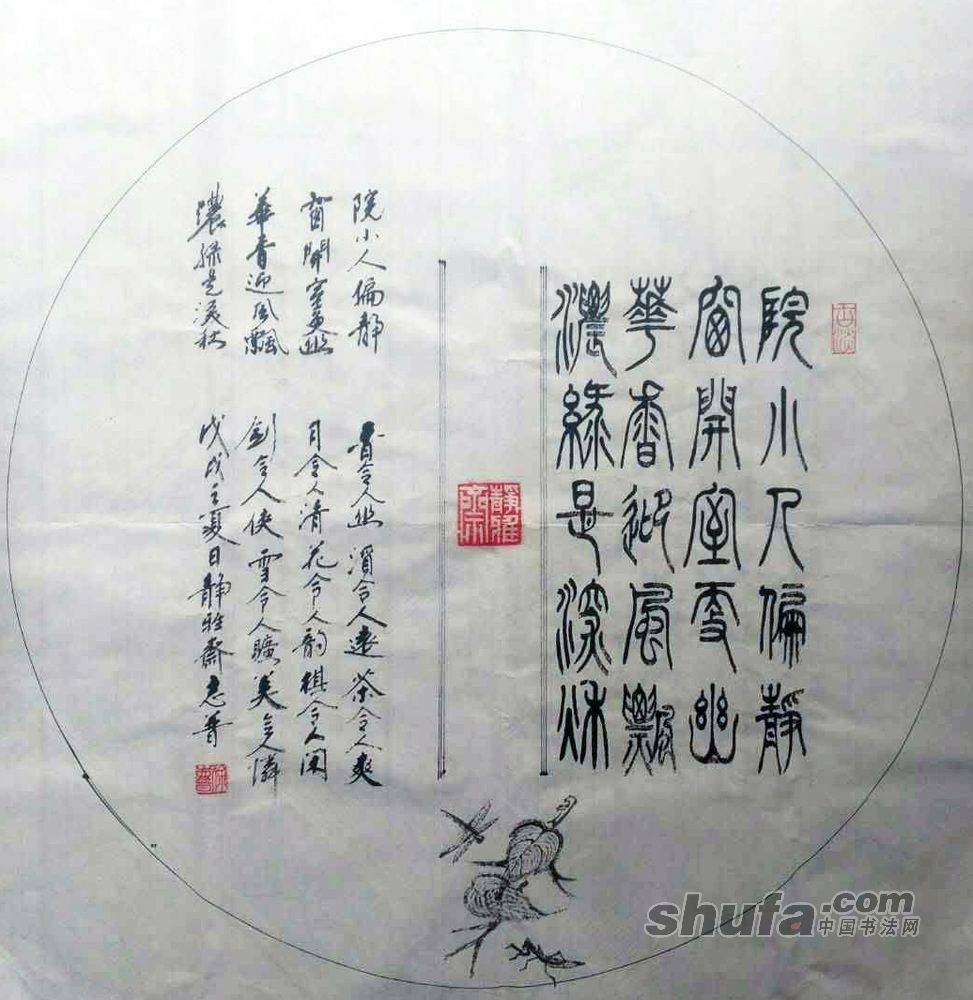 院小人偏靜
窗開室更幽
華香迎風飄
濃綠是深秋
靜雅齋
院小人偏静
窗開室更幽
華香迎風飄
濃綠是深秋
香令人幽 酒令人遠 茶令人爽
月令人清 花令人韵 棋令人閑
劍令人俠 雪令人曠 美令人憐
戊戌之夏日静雅齋
shufa.com
中国书法网